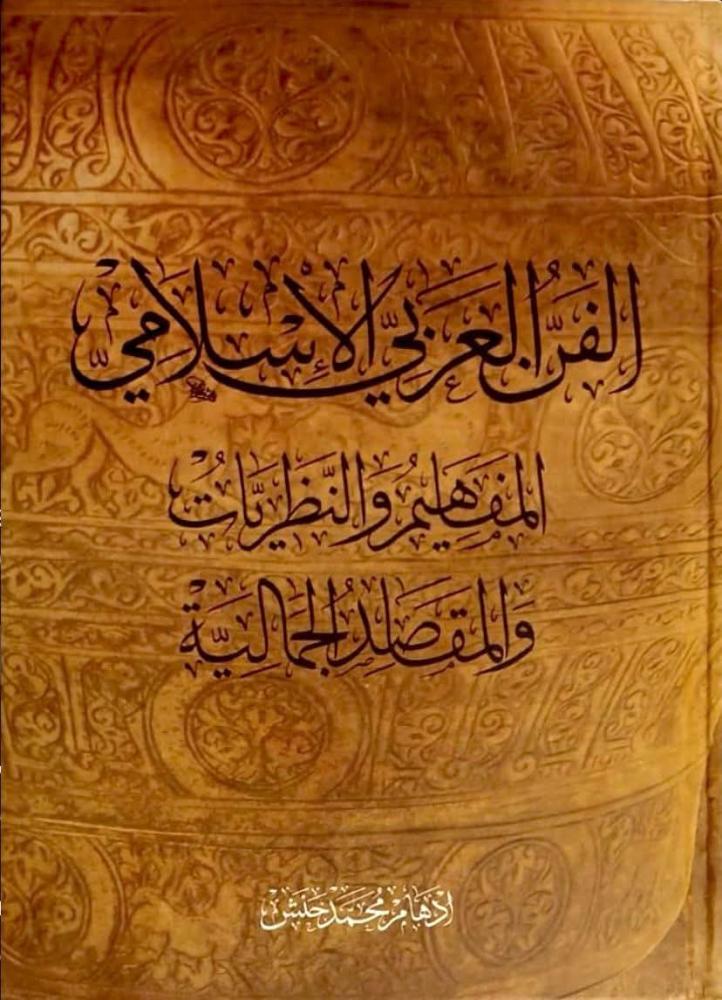 الفَنُّ العَرَبيُّ الإسْلاميُّ
المَفَاهِيمُ وَالنَّظَرِيَّاتُ
وَالمَقَاصِدُ الجَمَالِيَّة
ادهَام مُحَمَّد حَنَش